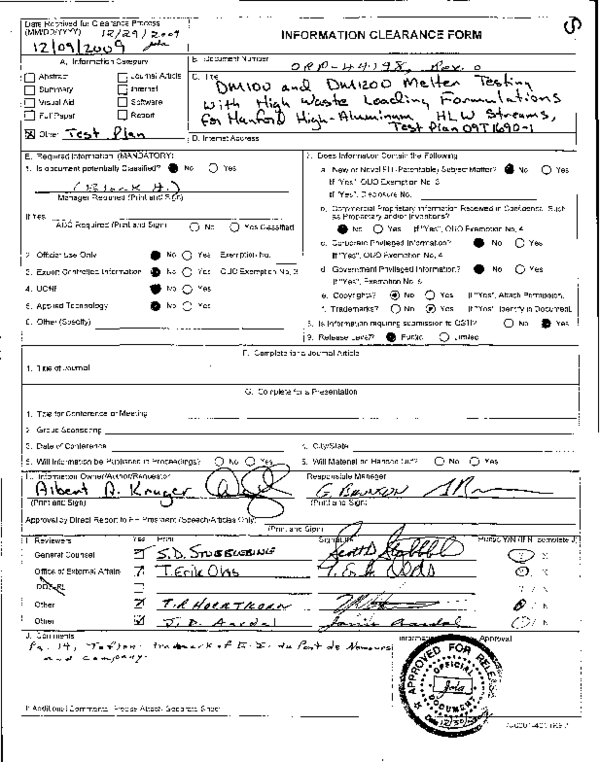 Date Received for Clearance Process
(MM/DD/YYYY) 12/29/2009
12/09/2009
INFORMATION CLEARANCE FORM
A. Information Category
Abstract Journal Article
Summary Internet
Visual Aid Software
Full Paper Report
Other Test Plan
B. Document Number ORP-44198, Rev. 0
C. Title
DM100 and DM1200 Melter Testing
with High Waste Loading Formulations
for Hanford High-Aluminum HLW Streams,
Test Plan 09T1690-1
D. Internet Address
E. Required Information (MANDATORY)
1. Is document potentially Classified? No Yes
Manager Required (Print and Sign)
If Yes
ADC Required (Print and Sign) No Yes Classified
2. Official Use Only No Yes Exemption No.
3. Export Controlled Information No Yes OUO Exemption No. 3
4. UCNI No Yes
5. Applied Technology No Yes
6. Other (Specify)
7. Does Information Contain the Following
a. New or Novel (Patentable) Subject Matter? No Yes
If "Yes", OUO Exemption No. 3
If "Yes", Disclosure No.
b. Commercial Proprietary Information Received in Confidence, Such
as Proprietary and/or Inventions?
No Yes If "Yes", OUO Exemption No. 4
c. Corporate Privileged Information? No Yes
If "Yes", OUO Exemption No. 4
d. Government Privileged Information? No Yes
If "Yes", Exemption No. 5
e. Copyrights? No Yes If "Yes", Attach Permission.
f. Trademarks? No Yes If "Yes", Identify in Document.
8. Is Information requiring submission to OSTI? No Yes
9. Release Level? Public Limited
F. Complete for a Journal Article
1. Title of Journal
G. Complete for a Presentation
1. Title for Conference or Meeting
2. Group Sponsoring
3. Date of Conference
4. City/State
5. Will Information be Published in Proceedings? No Yes
6. Will Material be Handed Out? No Yes
H. Information Owner/Author/Requestor
Albert A. Kruger
(Print and Sign)
Responsible Manager
(Print and Sign)
Approval by Direct Report to President (Speech/Articles Only)
(Print and Sign)
I. Reviewers Yes Print Signature Public Y/N (If N, complete J)
General Counsel S.D. Stubblebine
Office of External Affairs T. Erik Olds
DOE-RL
Other
Other J. D. Aardal
J. Comments
Pg. 14, Teflon: trademark of E. I. du Pont de Nemours
and Company.
Information Approval
APPROVED FOR RELEASE
OFFICIAL
DOCUMENT
If Additional Comments, Please Attach Separate Sheet